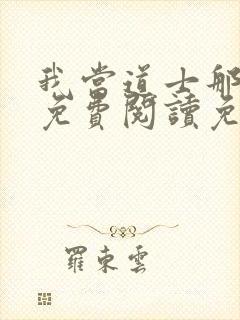 我當道士那
免費閱讀免
羅東雲